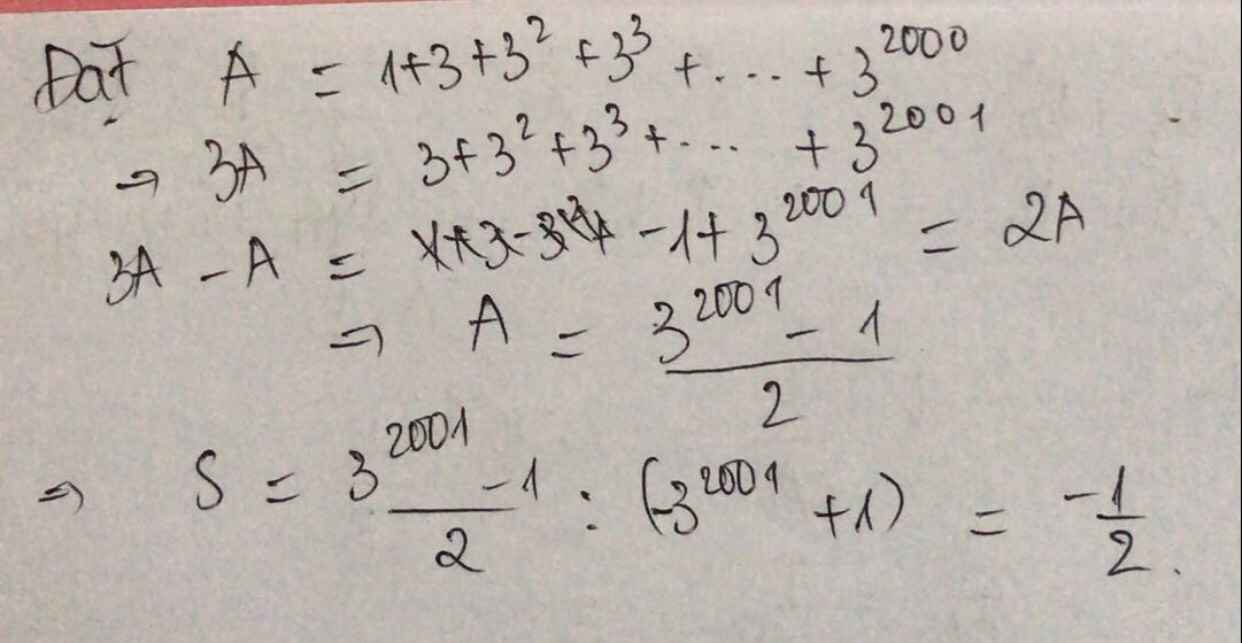 Đặt A = 1+3+3² +3³ + .... + 3²⁰⁰⁰
⇒ 3A = 3+3²+3³+.... + 3²⁰⁰¹
3A - A = -1+ 3²⁰⁰¹ = 2A
⇒ A = (3²⁰⁰¹ - 1)/2
⇒ S = (3²⁰⁰¹ - 1)/2 : (-3²⁰⁰¹ +1) = -1/2.